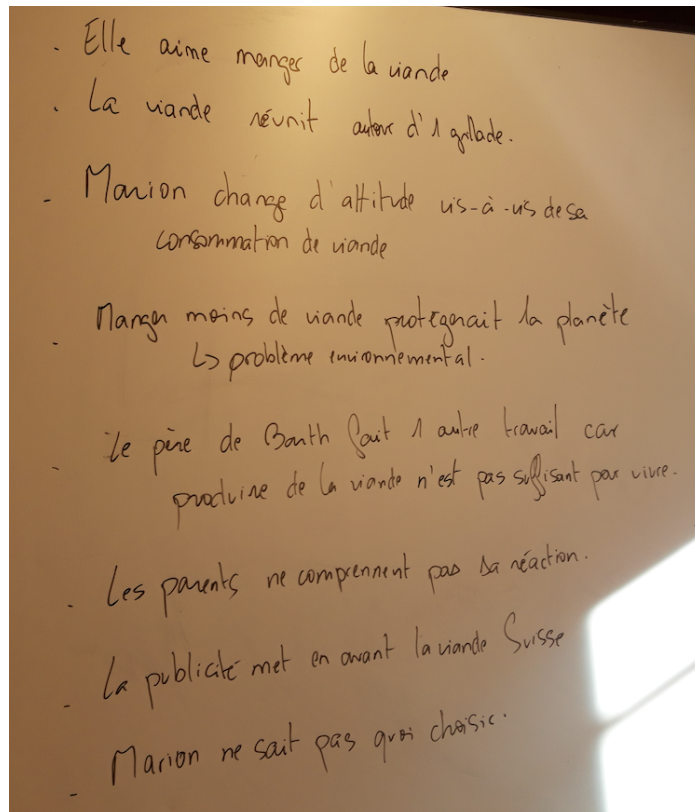 . Elle aime manger de la viande
. La viande réunit autour d'1 grillade.
- Marion change d'attitude vis-à-vis de sa
consommation de viande
. Manger moins de viande protégerait la planète
↳ problème environnemental.
- Le père de Barth fait 1 autre travail car
produire de la viande n'est pas suffisant pour vivre.
. Les parents ne comprennent pas sa réaction.
- La publicité met en avant la viande Suisse
- Marion ne sait pas quoi choisir.